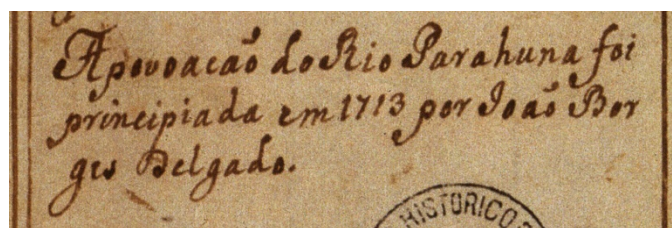 Apovoacaõ do Rio Parahuna foi
principiada em 1713 por Joaõ Bor
ges Delgado.
HISTORICO